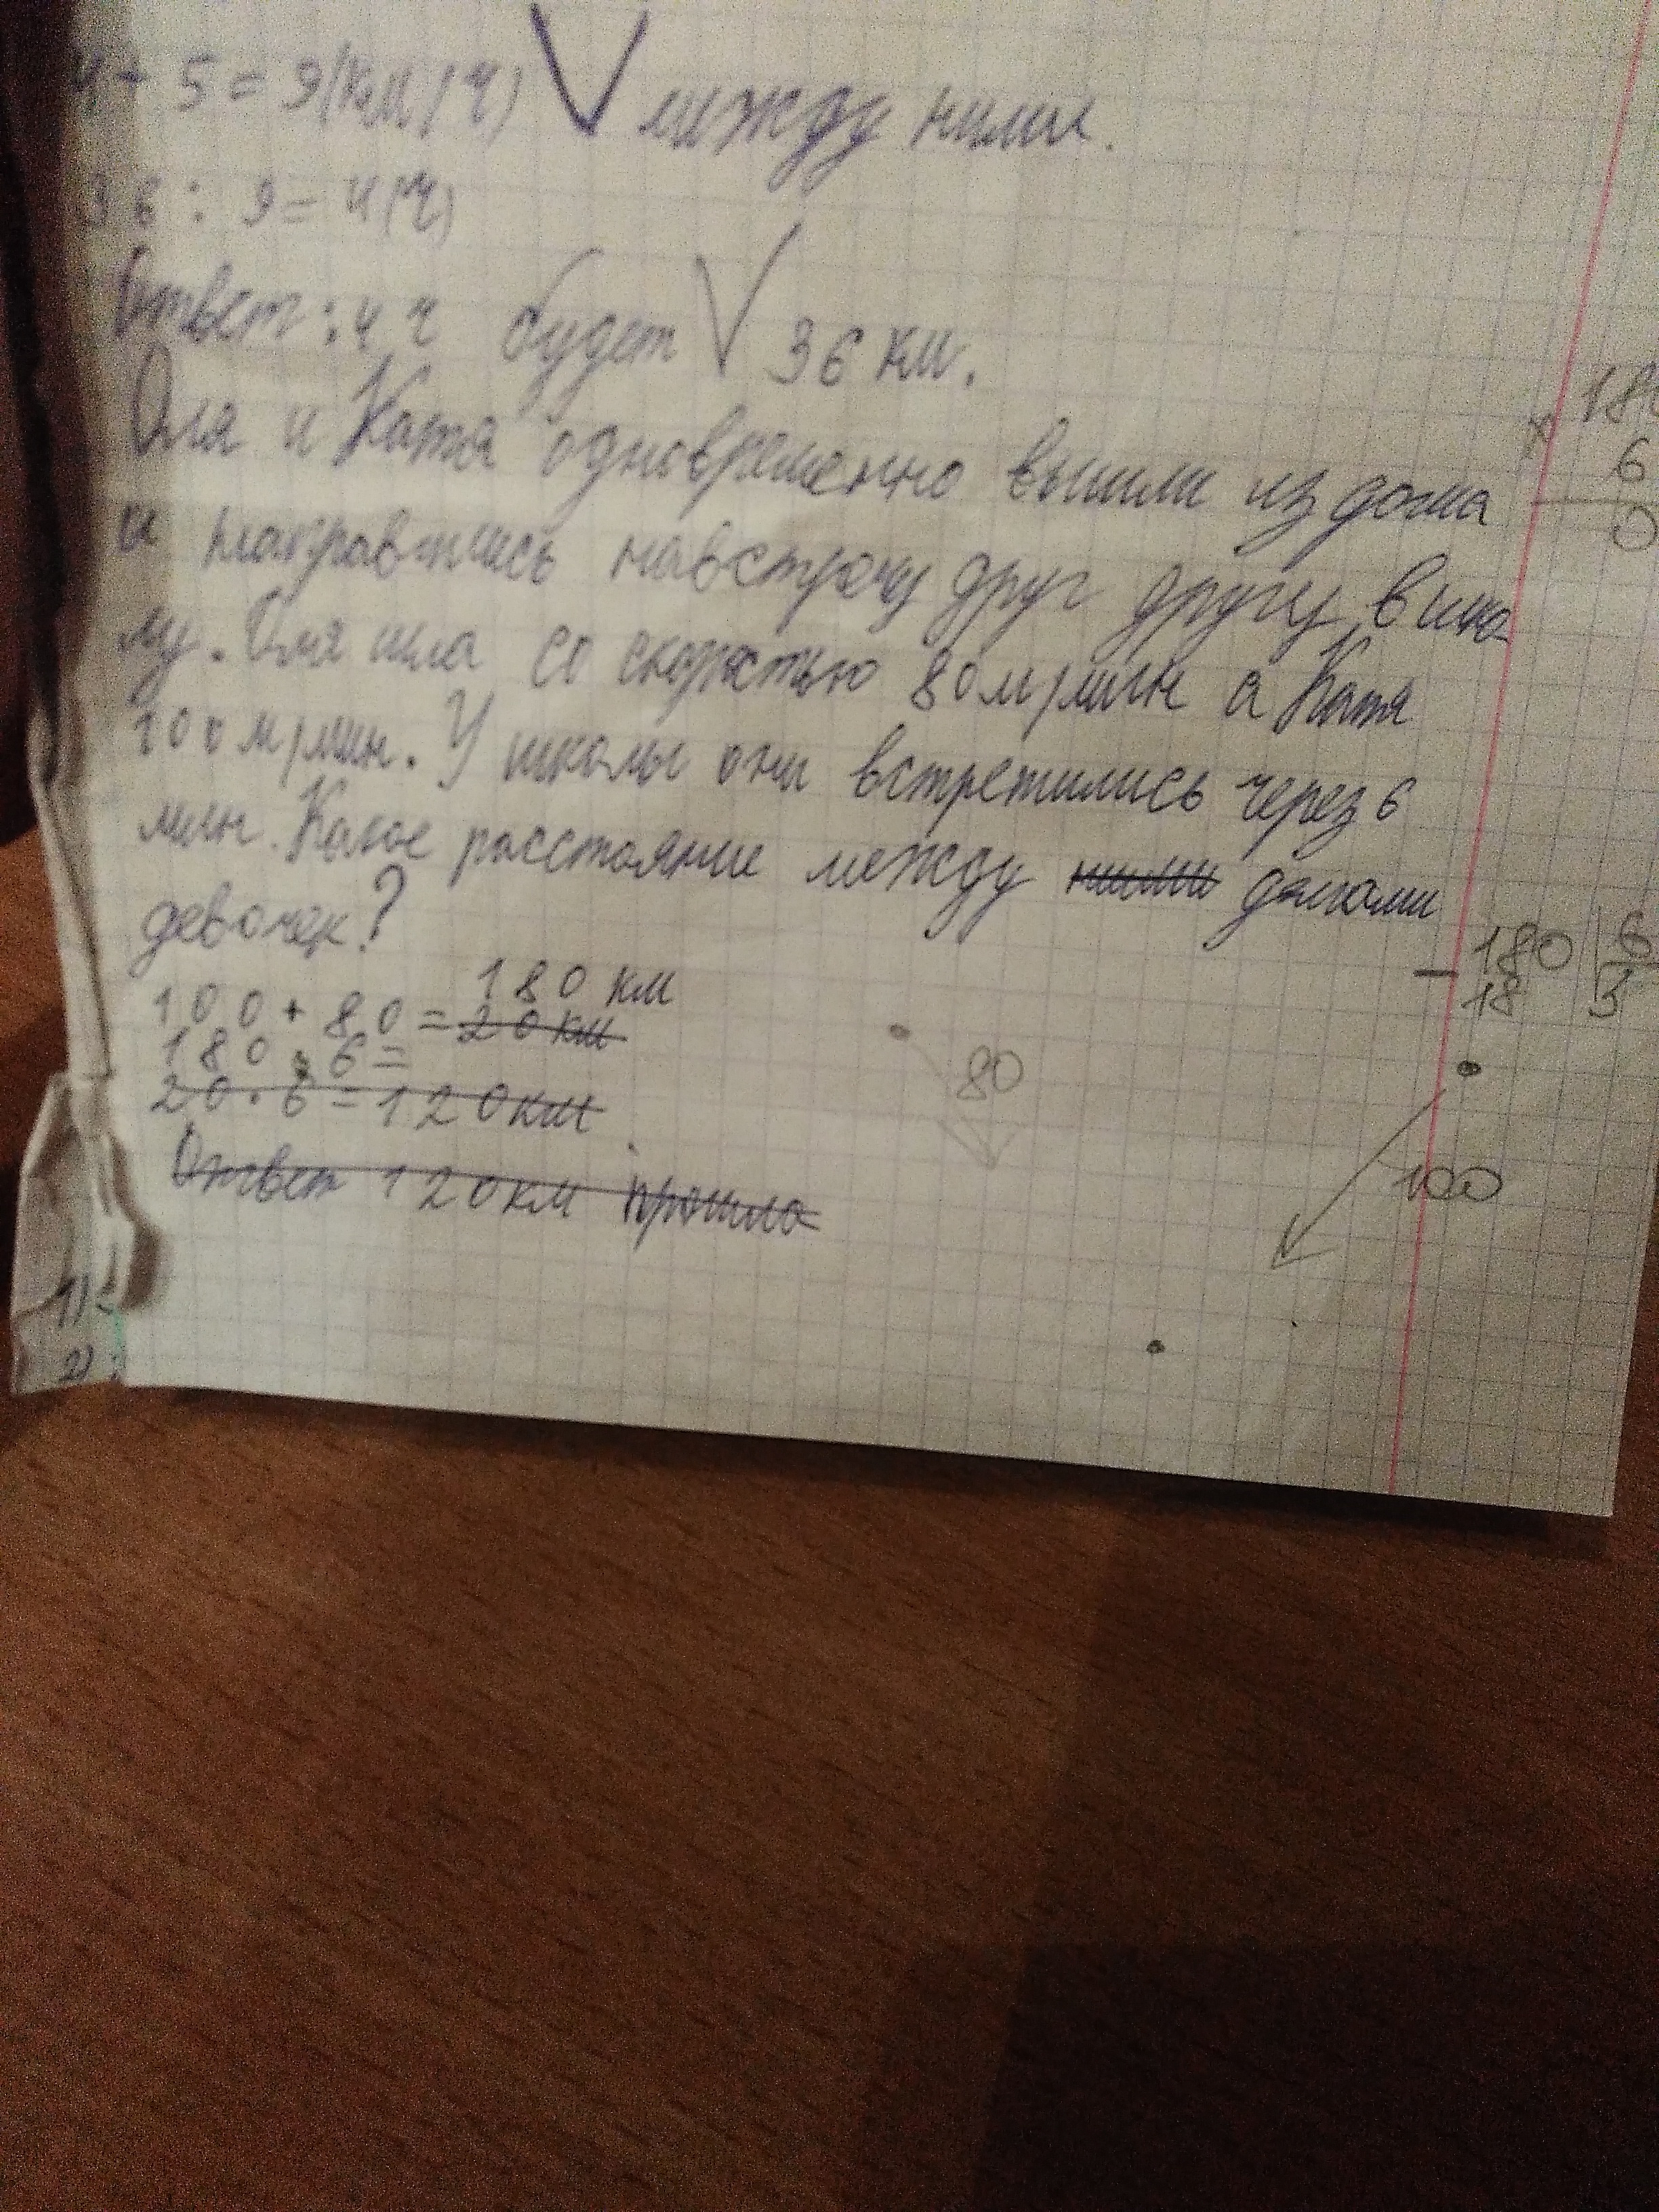 4 + 5 = 9 (км/ч) V между ними.
36 : 9 = 4 (ч)
Ответ: 4 ч будет V 36 км.
Оля и Катя одновременно вышли из дома
и направились навстречу друг другу в шко-
лу. Оля шла со скоростью 80 м/мин а Катя
100 м/мин. У школы они встретились через 6
мин. Какое расстояние между ними домами
девочек?
100 + 80 = 20 км 180 км
180 : 6 =
20 · 6 = 120 км
Ответ 120 км прошла
1)
2)
× 180
6
0
- 180 | 6
18 3
80
100